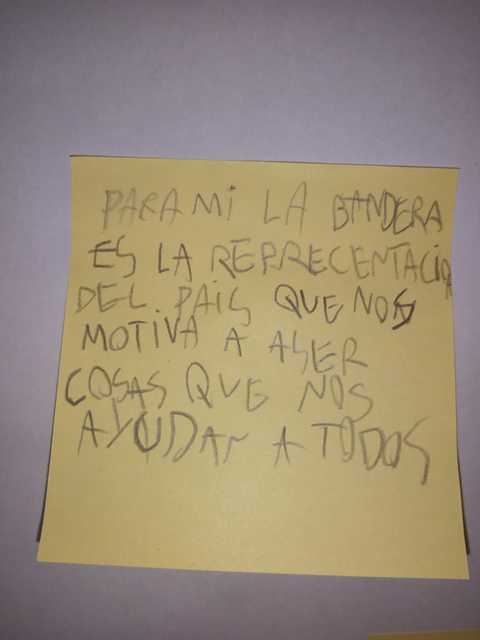 PARA Mi LA BANDERA
ES LA REPRECENTACiO
DEL PAIS QUE NOS
MOTIVA A ASER
COSAS QUE NOS
AYUDAN A TODOS